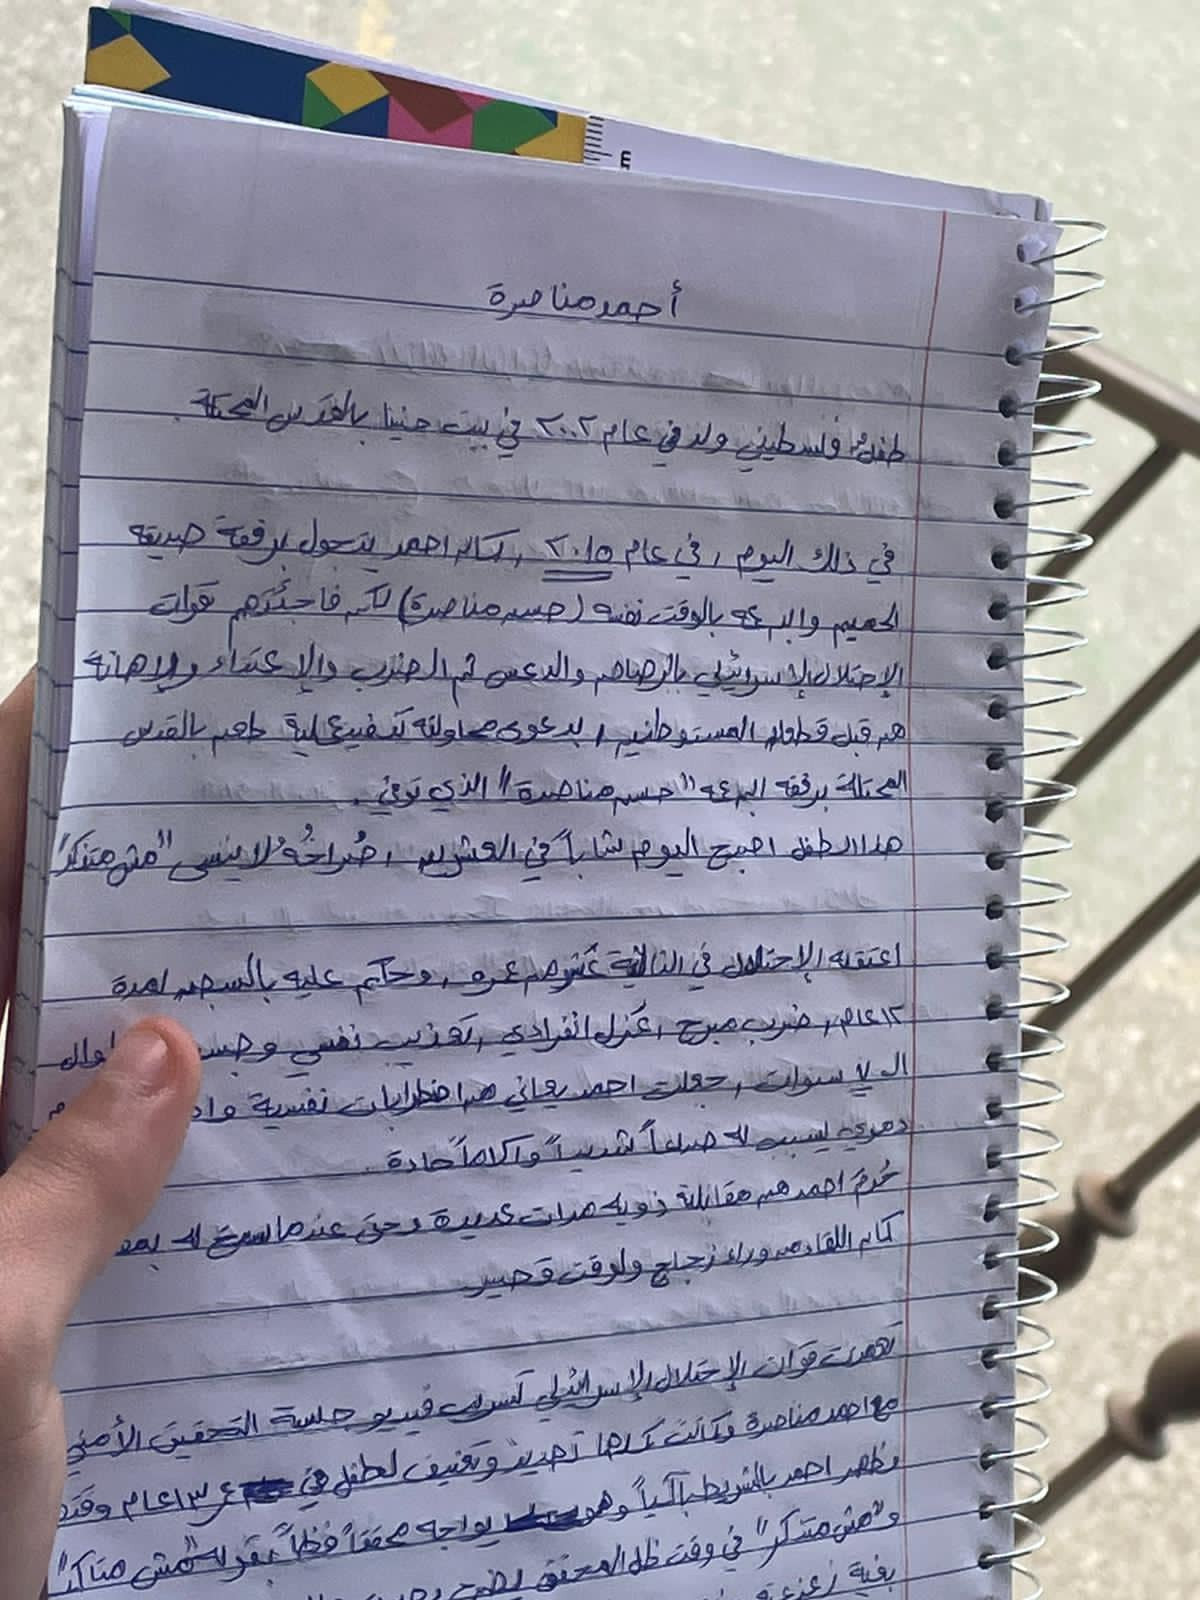 أحمد مناصرة
طفلٌ فلسطيني ولد في عام ٢٠٠٢ في بيت حنينا بالقدس المحتلة.
في ذلك اليوم , في عام ٢٠١٥ , كان احمد يتجول برفقة صديقه
الحميم وابن عمه بالوقت نفسه (حسن مناصرة) لكن فاجئتهم قوات
الإحتلال الإسرائيلي بالرصاص والدعس ثم الضرب والإعتداء والإهانة
من قبل قطعان المستوطنين , بدعوى محاولته تنفيذ عملية طعن بالقدس
المحتلة برفقة ابن عمه "حسن مناصرة" الذي توفي .
هذا الطفل اصبح اليوم شاباً في العشرين , صُراخهُ لا ينسى "مش متذكر"
اعتقله الإحتلال في الثالثة عشر من عمره , وحكم عليه بالسجن لمدة
١٢ عام , ضرب مبرح , عزل انفرادي , تعذيب نفسي وجس طوال
ال ٧ سنوات , جعلت احمد يعاني من اضطرابات نفسية
دموي يسبب له صداعاً شديداً وآلاماً حادة .
حُرم احمد من مقابلة ذويه مرات عديدة وحتى عندما سمح له
كان اللقاء من وراء زجاج ولوقت قصير
تعمدت قوات الإحتلال الإسرائيلي تسريب فيديو جلسة التحقيق الأمني
مع احمد مناصرة وكانت كلها تهديد وتعنيف لطفل في عمر ١٣ عام وقتها
وظهر احمد بالشريط باكياً وهو يواجه محققاً فظاً بقوله "مش متأكد"
و"مش متذكر" في وقت ظل المحقق يصرخ
بغية زعزعة